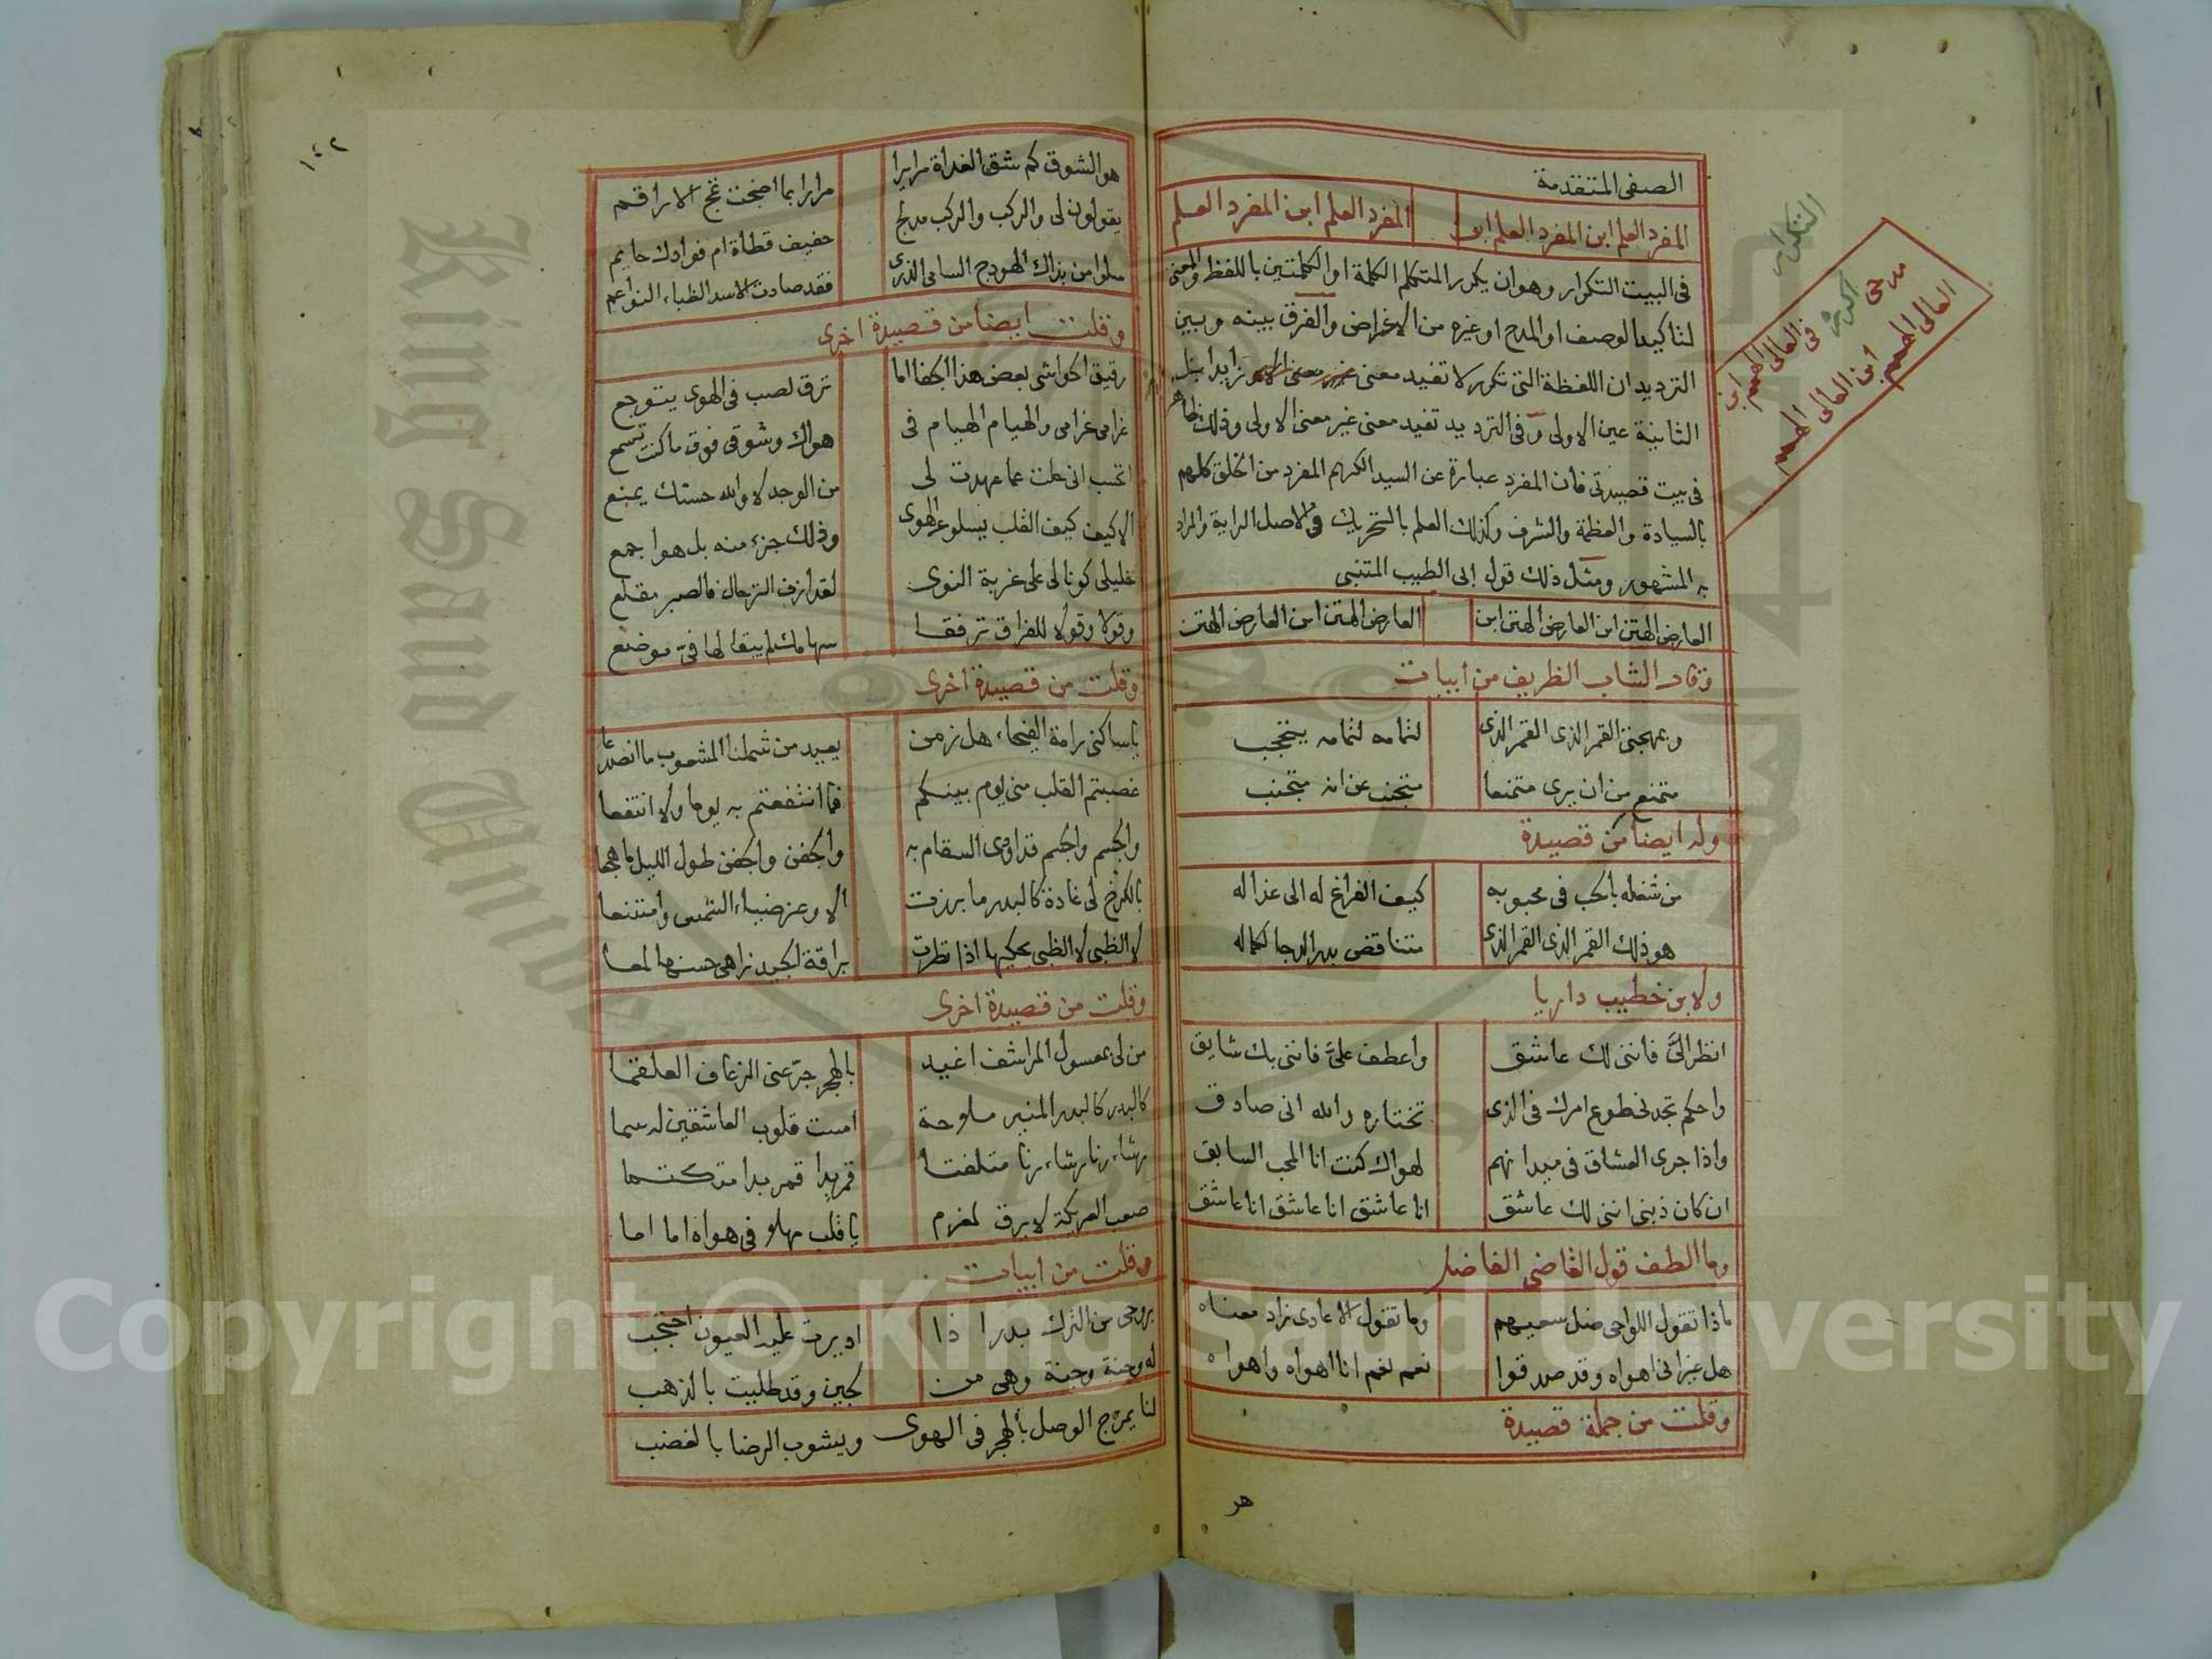 الصفى المتقدمة
المفرد العلم ابن المفرد العلم ابن المفرد العلم ابن المفرد العلم
فى البيت التكرار وهو ان يكرر المتكلم الكلمة او الكلمتين باللفظ والمعنى
لتاكيد الوصف او المدح او غيره من الاغراض والفرق بينه وبين
الترديد ان اللفظة التى تكرر لا تفيد معنى زايدا بل
الثانية عين الاولى وفى الترديد تفيد معنى غير معنى الاولى وذلك ظاهر
فى بيت قصيدتى فان المفرد عبارة عن السيد الكريم المفرد من الخلق كلهم
بالسيادة والعظمة والشرف وكذلك العلم بالتحريك فى الاصل الراية والمراد
به المشهور ومثل ذلك قول ابى الطيب المتنبى
العارض الهتن ابن العارض الهتن ابن العارض الهتن ابن العارض الهتن
وقال الشاب الظريف من ابيات
وبمهجتى القمر الذى القمر الذى لثامه لثامه يحتجب
متمنع من ان يرى متمنعا متجنب عن انه متجنب
وله ايضا من قصيدة
من شغله بالحب فى محبوبه كيف الفراغ له الى عذاله
هو ذلك القمر الذى القمر الذى متناقض بدر الدجا لكماله
ولابن خطيب داريا
انظر الىَّ فاننى لك عاشق واعطف علىَّ فاننى بك شايق
واحكم تجدنى طوع امرك فى الذى تختاره والله انى صادق
واذا جرى العشاق فى ميدانهم لهواك كنت انا المحب السابق
ان كان ذنبى اننى لك عاشق انا عاشق انا عاشق انا عاشق
وما الطف قول القاضى الفاضل
ماذا تقول اللواحى ضل سعيهم وما تقول الاعادى زاد معناه
هل غير انى اهواه وقد صدقوا نعم نعم انا اهواه واهواه
وقلت من جملة قصيدة
هو
التكرار
مدحى اكرره فى العالى الهمم ابن
العالى الهمم ابن العالى الهمم
١٤٢
هو الشوق كم شق الغداة مرايرا مرايرا بما اضحت تمج الاراقم
يقولون لى والركب والركب مدلج حفيف قطاة ام فوادك حايم
سلوا من بذاك الهودج السامى الذرى فقد صادت الاسد الظباء النواعم
وقلت ايضا من قصيدة اخرى
رقيق الحواشى بعض هذا الجفا اما ترق لصب فى الهوى يتوجع
غرامى غرامى والهيام الهيام فى هواك وشوقى فوق ما كنت تسمع
اتحسب انى حلت عما عهدت لى من الوجد لا والله حسنك يمنع
الا كيف كيف القلب يسلو عن الهوى وذلك جزء منه بل هو اجمع
خليلى كونا لى على غربة النوى لقد ازف الترحال فالصبر مقلع
وقولا وقولا للفراق ترفقا سهامك لم يبقا لها فىّ موضع
وقلت من قصيدة اخرى
يا ساكنى رامة الفيحاء هل زمن يعيد من شملنا المشعوب ما انصدعا
غصبتم القلب منى يوم بينكم فما انتفعتم به يوما ولا انتفعا
والجسم والجسم قد اودى السقام به والجفن والجفن طول الليل ما هجعا
بالكرخ لى غادة كالبدر ما برزت الا وعز ضياء الشمس وامتنعا
لا الظبى لا الظبى يحكيها اذا نظرت براقة الجيد زاهى حسنها لمعا
وقلت من قصيدة اخرى
من لى بمعسول المراشف اغيد بالهجر جرّعنى الزعاف العلقما
كالبدر كالبدر المنير ملاحة امست قلوب العاشقين له سما
رشاء رنا رشاء رنا متلفتا قمر بدا قمر بدا متكتما
صعب العريكة لا يرق لمغرم يا قلب مهلا فى هواه اما اما
وقلت من ابيات
بروحى من الترك بدرا اذا اديرت عليه العيون احتجب
له وجنة وجنة وهى من لجين وقد طليت بالذهب
لنا يمزج الوصل بالهجر فى الهوى ويشوب الرضا بالغضب
King Saud University
Copyright © King Saud University